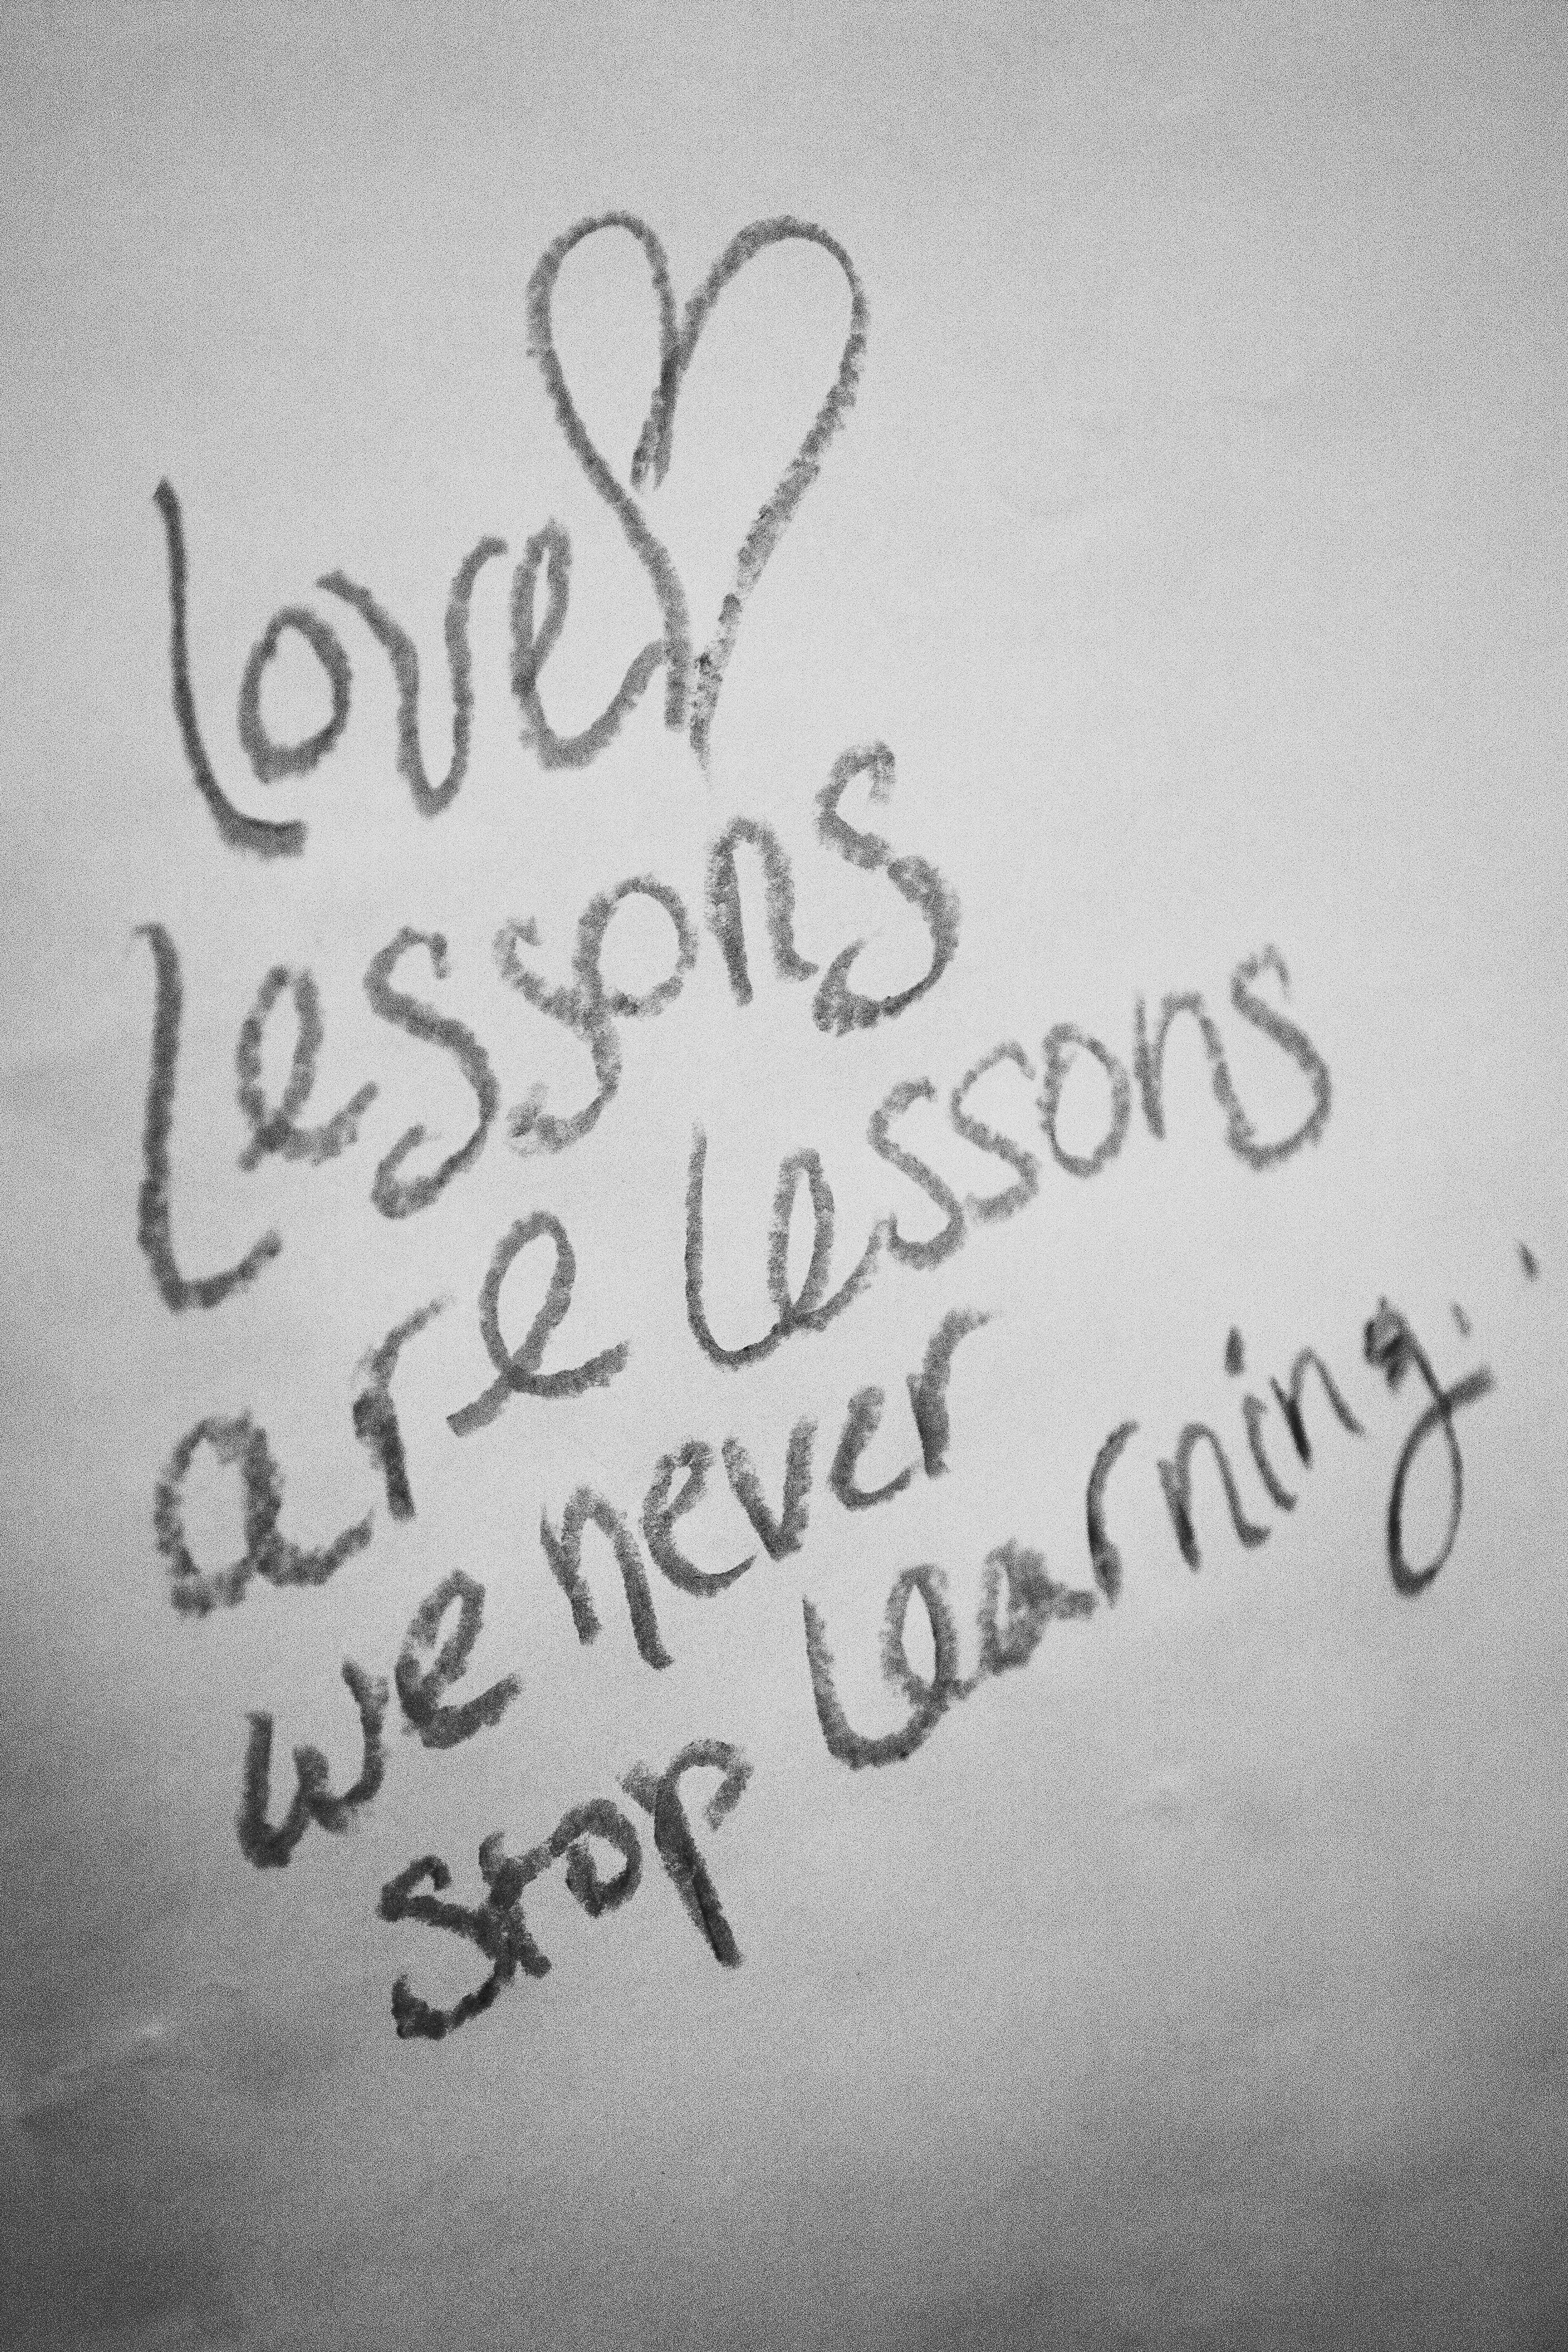 Love
Lessons
are Lessons
we never
stop Learning.